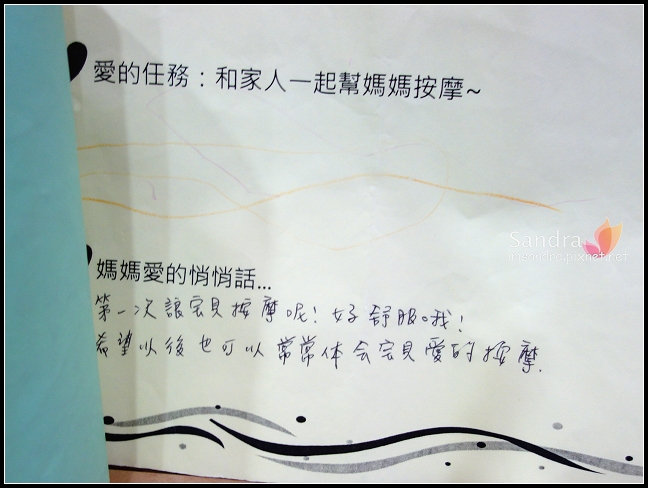 愛的任務：和家人一起幫媽媽按摩~
Sandra
媽媽愛的悄悄話...
第一次讓宝貝按摩呢!好舒服哦!
希望以後也可以常常体会宝貝愛的按摩.